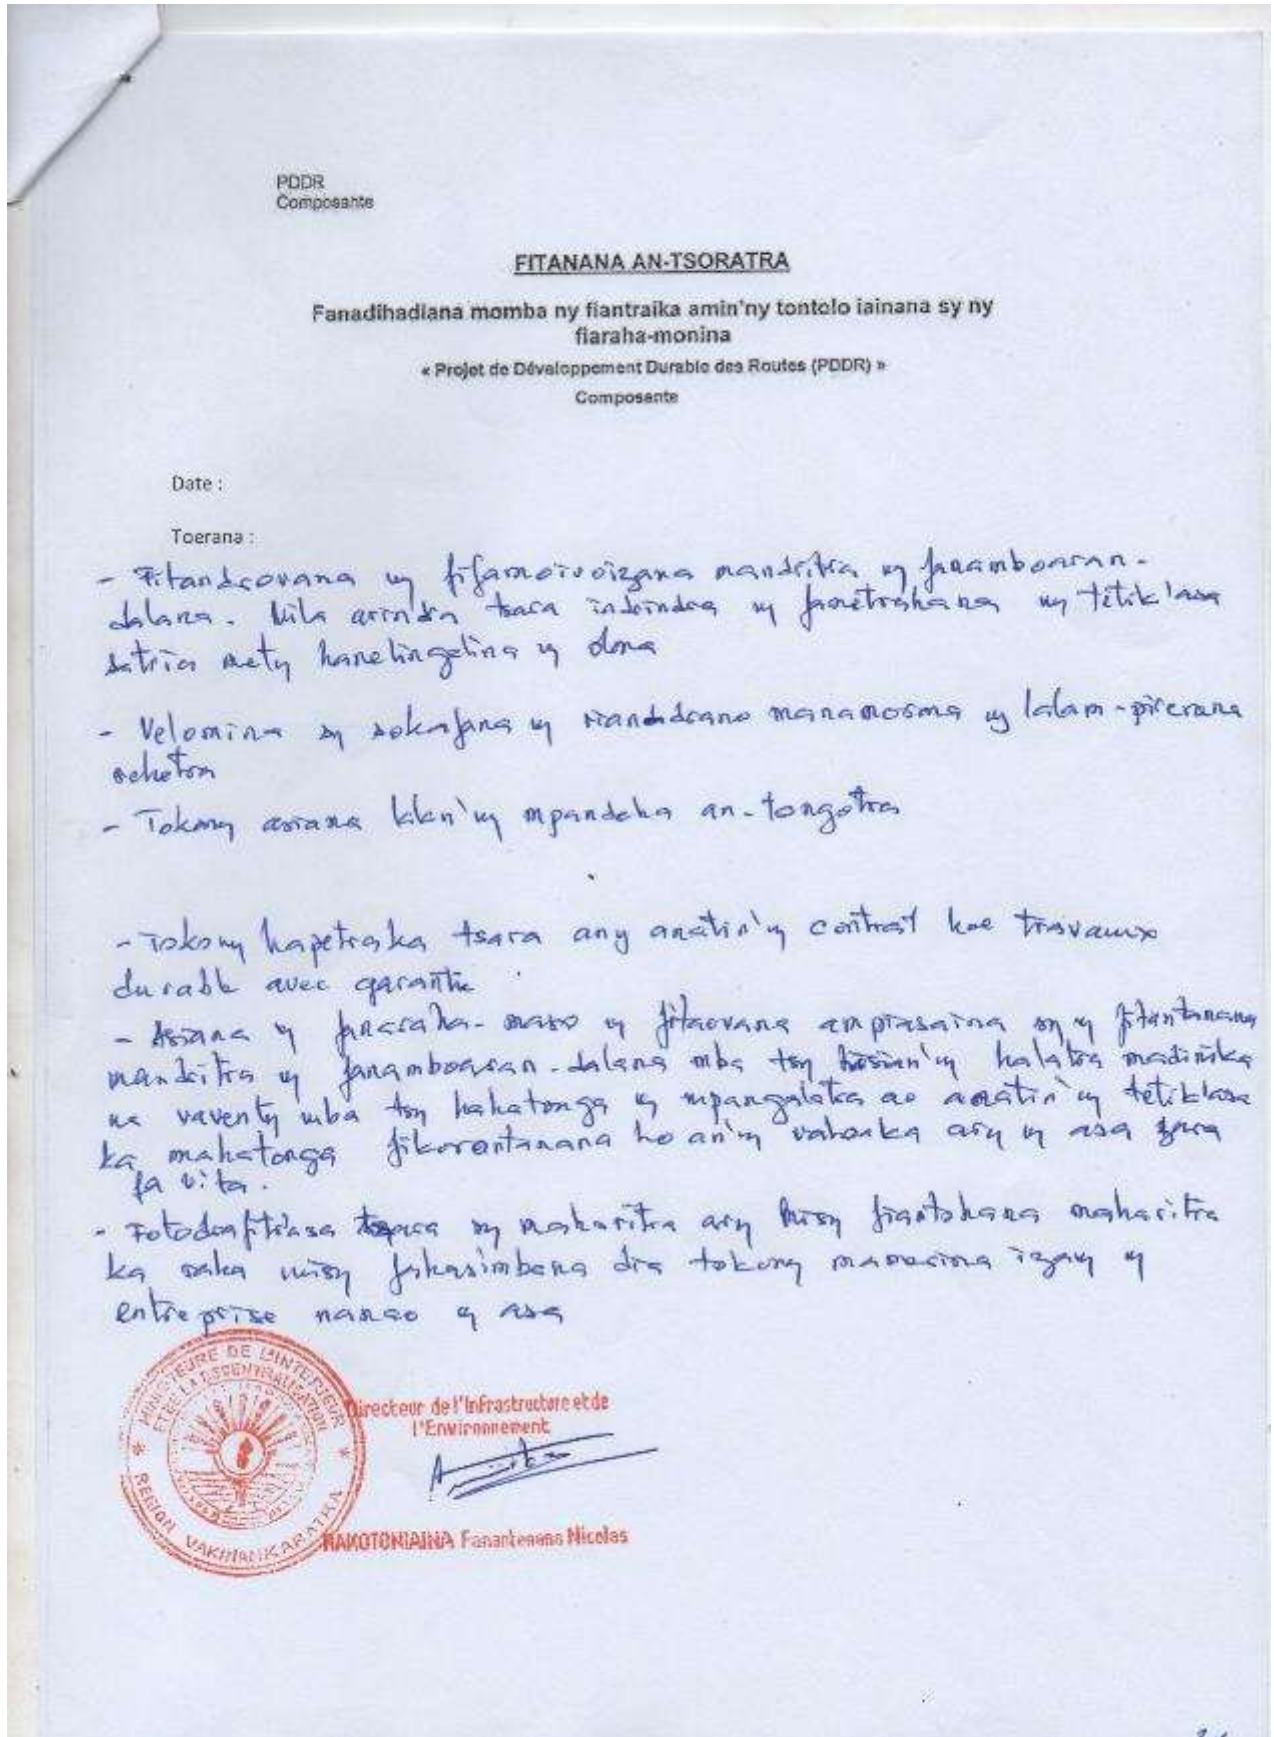 PDDR
Composante
FITANANA AN-TSORATRA
Fanadihadiana momba ny fiantraika amin'ny tontolo iainana sy ny
fiaraha-monina
« Projet de Développement Durable des Routes (PDDR) »
Composante
Date :
Toerana :
- Fitandrovana ny fifamoivoizana mandritra ny fanamboaran-
dalana. Mila arindra tsara indrindra ny fametrahana ny tetik'asa
satria mety hanelingelina ny olona
- Velomina sy sokafana ny riandrano manamorona ny lalam-pirenena
rehetra
- Tokony asiana lalan'ny mpandeha an-tongotra
- Tokony hapetraka tsara any anatin'ny contrat hoe travaux
durable avec garantie
- Asiana ny fanaraha-maso ny fitaovana ampiasaina sy ny fitantanana
mandritra ny fanamboaran-dalana mba tsy hisian'ny halatra madinika
na vaventy mba tsy hahatonga ny mpangalatra ao anatin'ny tetikasa
ka mahatonga fikorontanana ho an'ny vahoaka ary ny asa
fa vita.
- Fotodrafitrasa tsara sy maharitra ary misy fiantohana maharitra
ka raka misy fahasimbana dia tokony manarina izany ny
entreprise nanao ny asa
MINISTERE DE L'INTERIEUR
ET DE LA DECENTRALISATION
REGION VAKINANKARATRA
Directeur de l'Infrastructure et de
l'Environnement
RAKOTONIAINA Nicolas